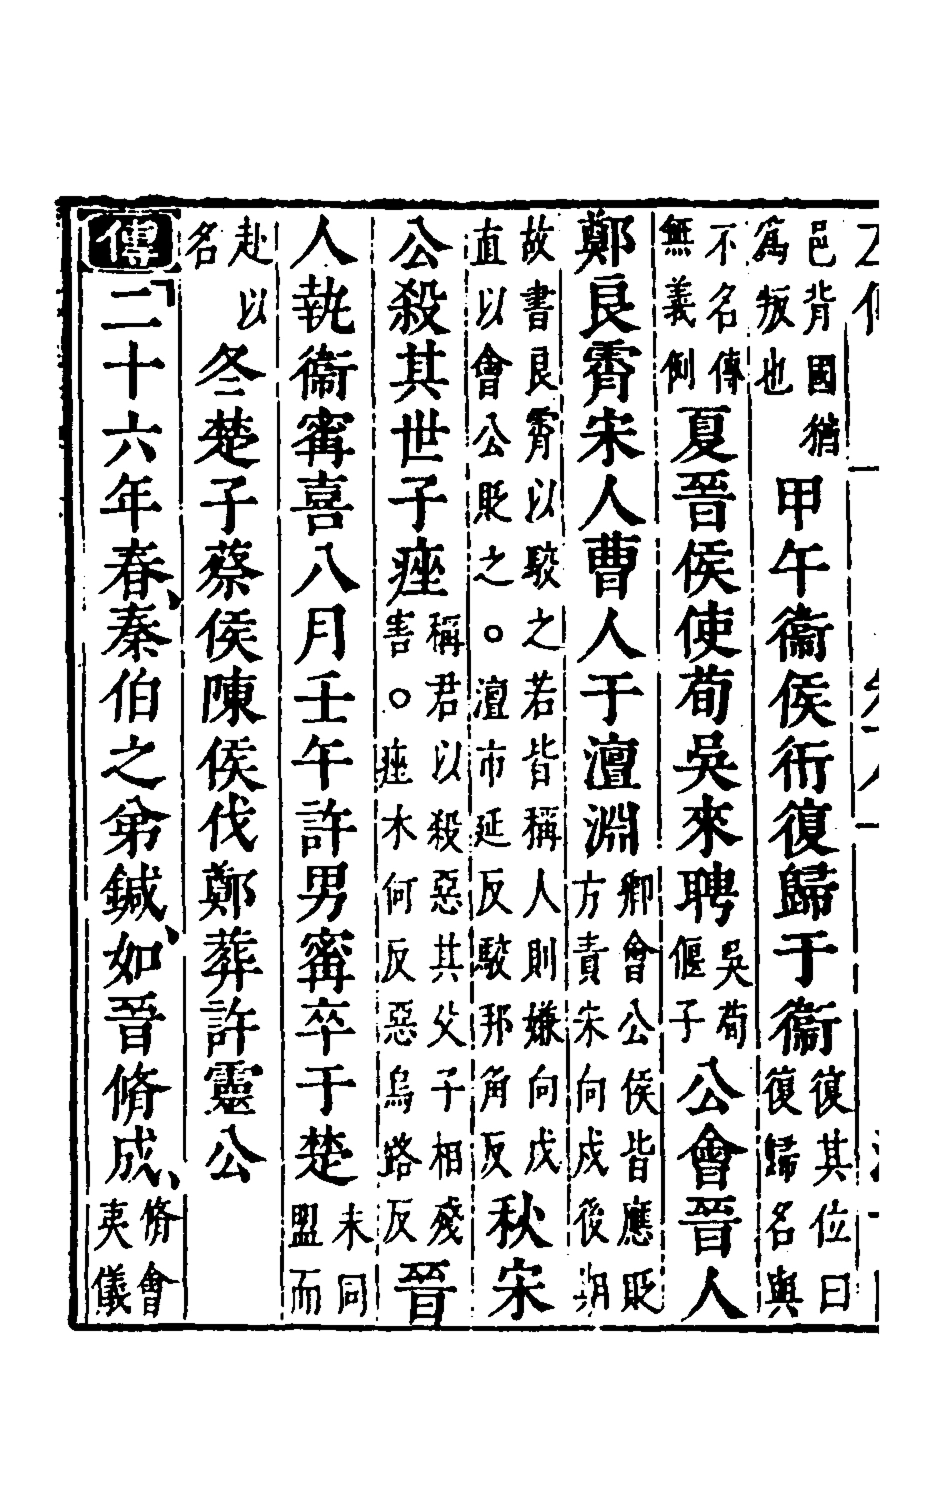 邑背國猶爲叛也甲午衞侯衎復歸于衞復其位曰復歸名與
不名傳無義例夏晉侯使荀吳來聘吳荀偃子公會晉人
鄭良霄宋人曹人于澶淵卿會公侯皆應貶方責宋向戌後期
故書良霄以駮之若皆稱人則嫌向戌直以會公貶之。澶市延反駮邦角反秋宋
公殺其世子痤稱君以殺惡其父子相殘害。痤木何反惡烏路反晉
人執衞甯喜八月壬午許男甯卒于楚未同盟而
赴以名冬楚子蔡侯陳侯伐鄭葬許靈公
傳二十六年春、秦伯之弟鍼、如晉脩成、脩會夷儀